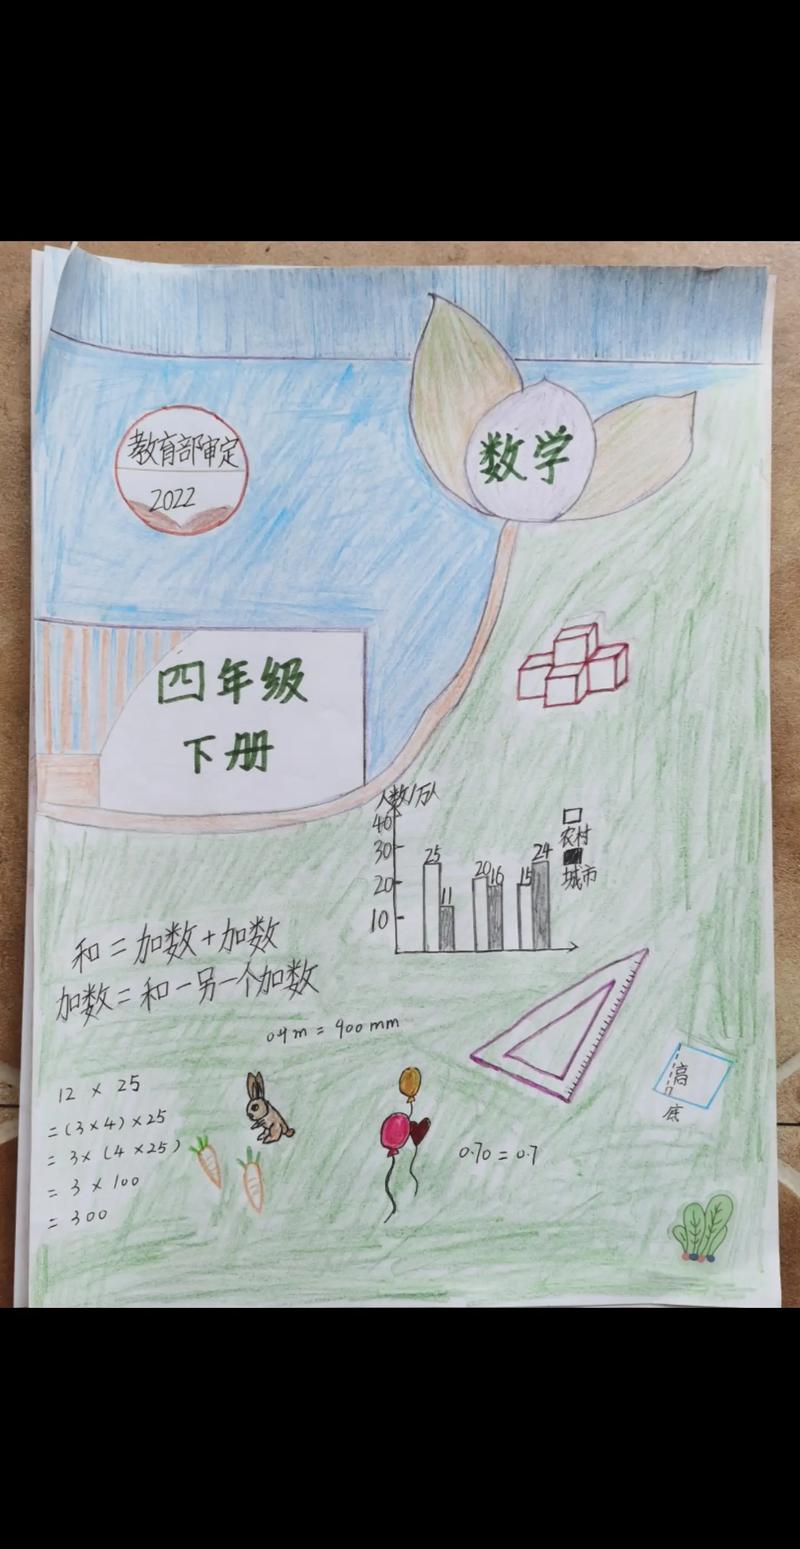 数学
教育部审定
2022
四年级
下册
人数/万人
40
30
20
10
25
11
20
16
15
24
农村
城市
和=加数+加数
加数=和-另一个加数
0.4m = 400mm
12 × 25
=(3×4)×25
= 3×(4×25)
= 3 × 100
= 300
0.70 = 0.7
高
底